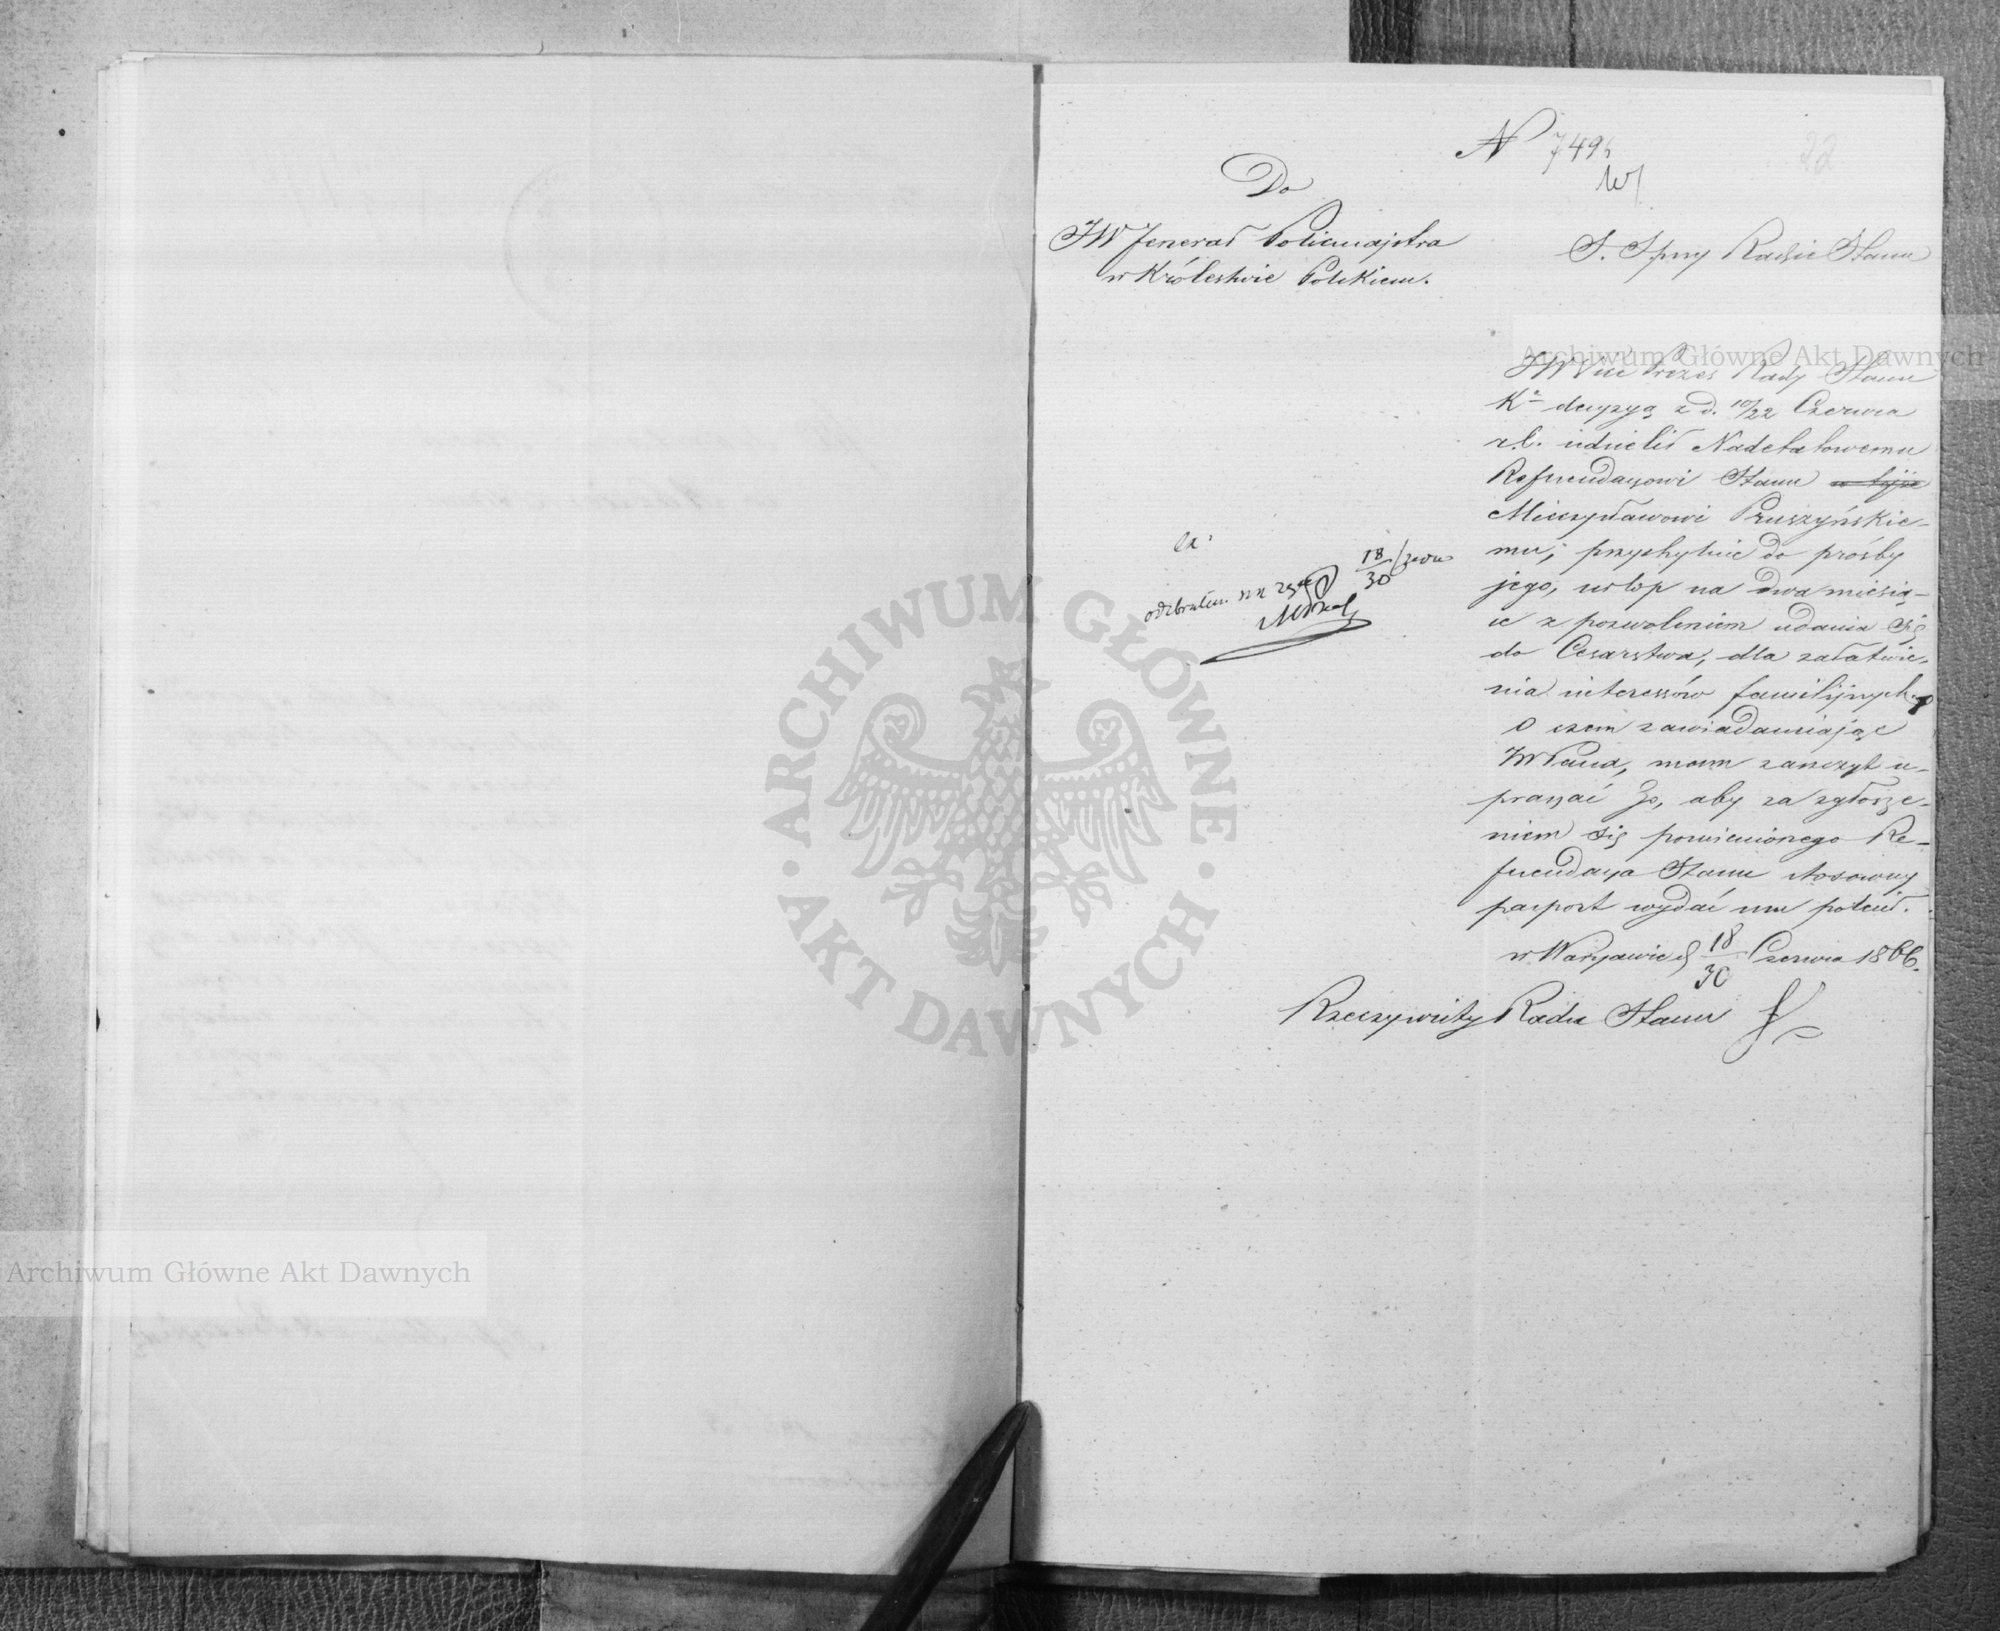 N 7495
W/
22
Do
JW Jenerał Policmajstra
w Królestwie Polskiem.
S. Spraw Radzie Stanu
JW Vice Prezes Rady Stanu
Kr. decyzyą z d. 10/22 Czerwca
r.b. udzielił Nadetatowemu
Referendarzowi Stanu
Mieczysławowi Pruszyńskie-
mu, przychylnie do prośby
jego, urlop na dwa miesią-
ce z pozwoleniem udania się
do Cesarstwa, dla załatwie-
nia interessów familijnych.
O czem zawiadamiając
JW Pana, mam zaszczyt u-
praszać Go, aby za zgłosze-
niem się pomienionego Re-
ferendarza Stanu stosowny
paszport wydać mu polecił.
w Warszawie d 18/30 Czerwca 1866.
Rzeczywisty Radca Stanu
odebrałem
18/30 Czerw
Archiwum Główne Akt Dawnych
Archiwum Główne Akt Dawnych
ARCHIWUM GŁÓWNE · AKT DAWNYCH ·